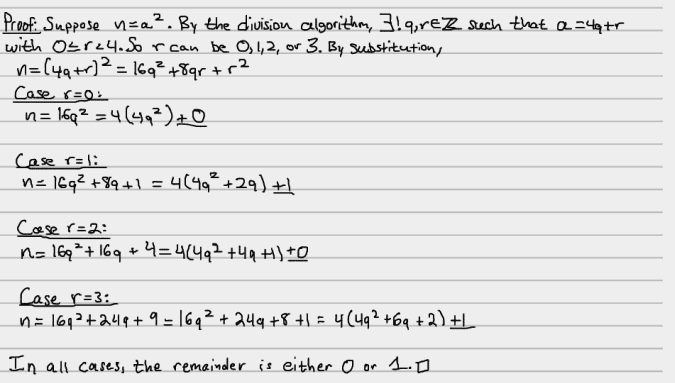 Proof: Suppose n=a². By the division algorithm, ∃! q,r∈ℤ such that a=4q+r
with 0≤r<4. So r can be 0,1,2, or 3. By substitution,
n=(4q+r)² = 16q² +8qr + r²
Case r=0:
n= 16q² = 4(4q²)+0
Case r=1:
n= 16q² +8q+1 = 4(4q² +2q)+1
Case r=2:
n= 16q²+16q + 4=4(4q²+4q+1)+0
Case r=3:
n= 16q²+24q+ 9 = 16q² + 24q +8 +1 = 4(4q²+6q +2)+1
In all cases, the remainder is either 0 or 1. □